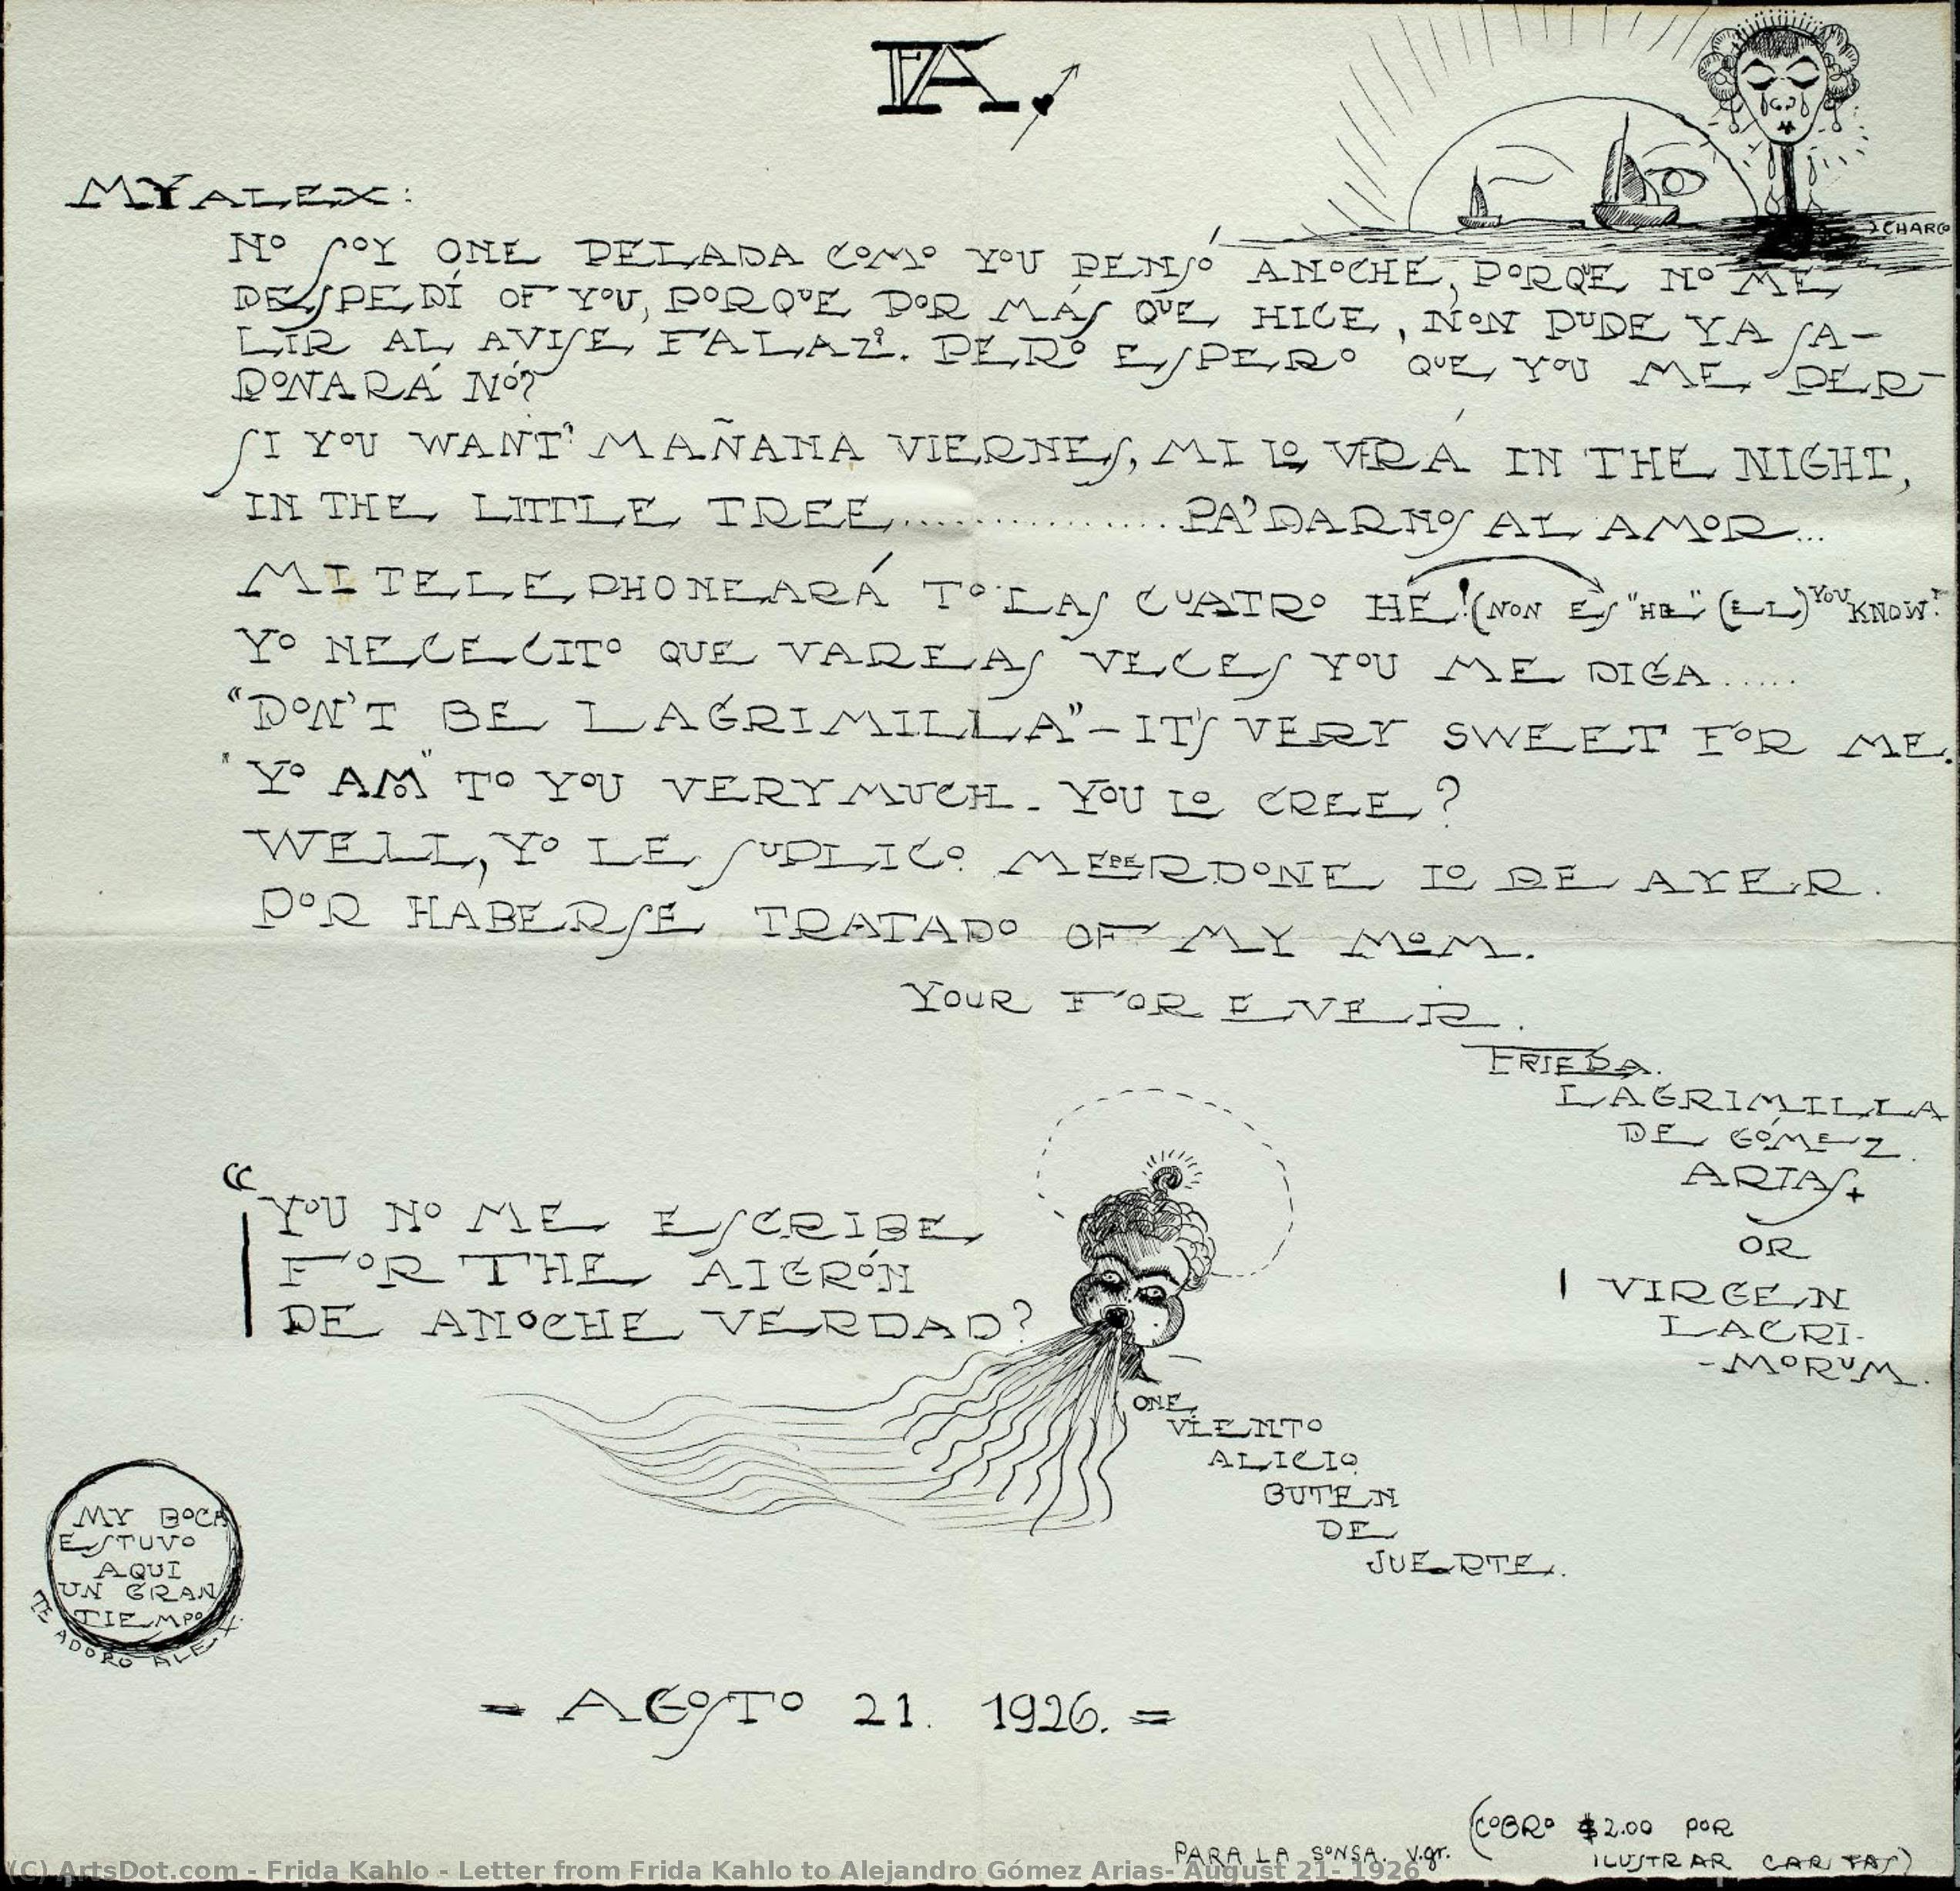 FA
MY ALEX:
CHARCO
NO SOY ONE PELADA COMO YOU PENSÓ ANOCHE, PORQUE NO ME
DESPEDÍ OF YOU, PORQUE POR MÁS QUE HICE, NON PUDE YA SA-
LIR AL AVISE FALAZ. PERO ESPERO QUE YOU ME PER-
DONARÁ NÓ?
SI YOU WANT? MAÑANA VIERNES, MI LO VERÁ IN THE NIGHT,
IN THE LITTLE TREE................PA'DARNOS AL AMOR...
MI TELEPHONEARÁ TO LAS CUATRO HE!(NON ES "HE" (EL) YOU KNOW?
YO NECECITO QUE VAREAS VECES YOU ME DIGA.....
"DON'T BE LAGRIMILLA"-IT'S VERY SWEET FOR ME.
"YO AM" TO YOU VERY MUCH. YOU LO CREE?
WELL, YO LE SUPLICO ME PERDONE LO DE AYER.
POR HABERSE TRATADO OF MY MOM.
YOUR FOR EVER.
FRIEDA.
LAGRIMILLA
DE GÓMEZ
ARIAS
OR
VIRGEN
LACRI-
-MORUM.
"YOU NO ME ESCRIBE
FOR THE AIGRÓN
DE ANOCHE VERDAD?
ONE
VIENTO
ALICIO
BUTEN
DE
JUERTE.
MY BOCA
ESTUVO
AQUI
UN GRAN
TIEMPO
TE ADORO ALEX.
= AGOSTO 21. 1926. =
(COBRO $2.00 POR
ILUSTRAR CARTAS)
PARA LA SONSA. v.gr.
(C) ArtsDot.com - Frida Kahlo - Letter from Frida Kahlo to Alejandro Gómez Arias- August 21- 1926